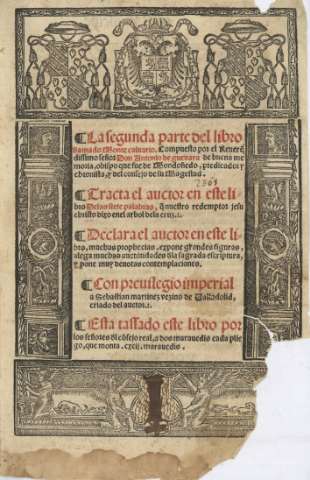 ¶La segunda parte del libro
llamado Monte caluario. Compuesto por el Reuerē
dissimo señor Don Antonio de gueuara de buena me
moria, obispo que fue de Mondoñedo, predicador y
chronista, y del consejo de su Magestad.
¶Tracta el auctor en este li
bro Delas siete palabras, q̄ nuestro redemptor jesu
christo dixo enel arbol dela cruz.
¶Declara el auctor en este li-
bro, muchas prophecias, expone grandes figuras,
alega muchas auctoridades dela sagrada escriptura,
y pone muy deuotas contemplaciones.
¶Con preuilegio imperial
a Sebastian martinez vezino de Valladolid,
criado del auctor.
¶Esta tassado este libro por
los señores del cōsejo real, a dos marauedis cada plie
go, que monta. cxcij. marauedis.